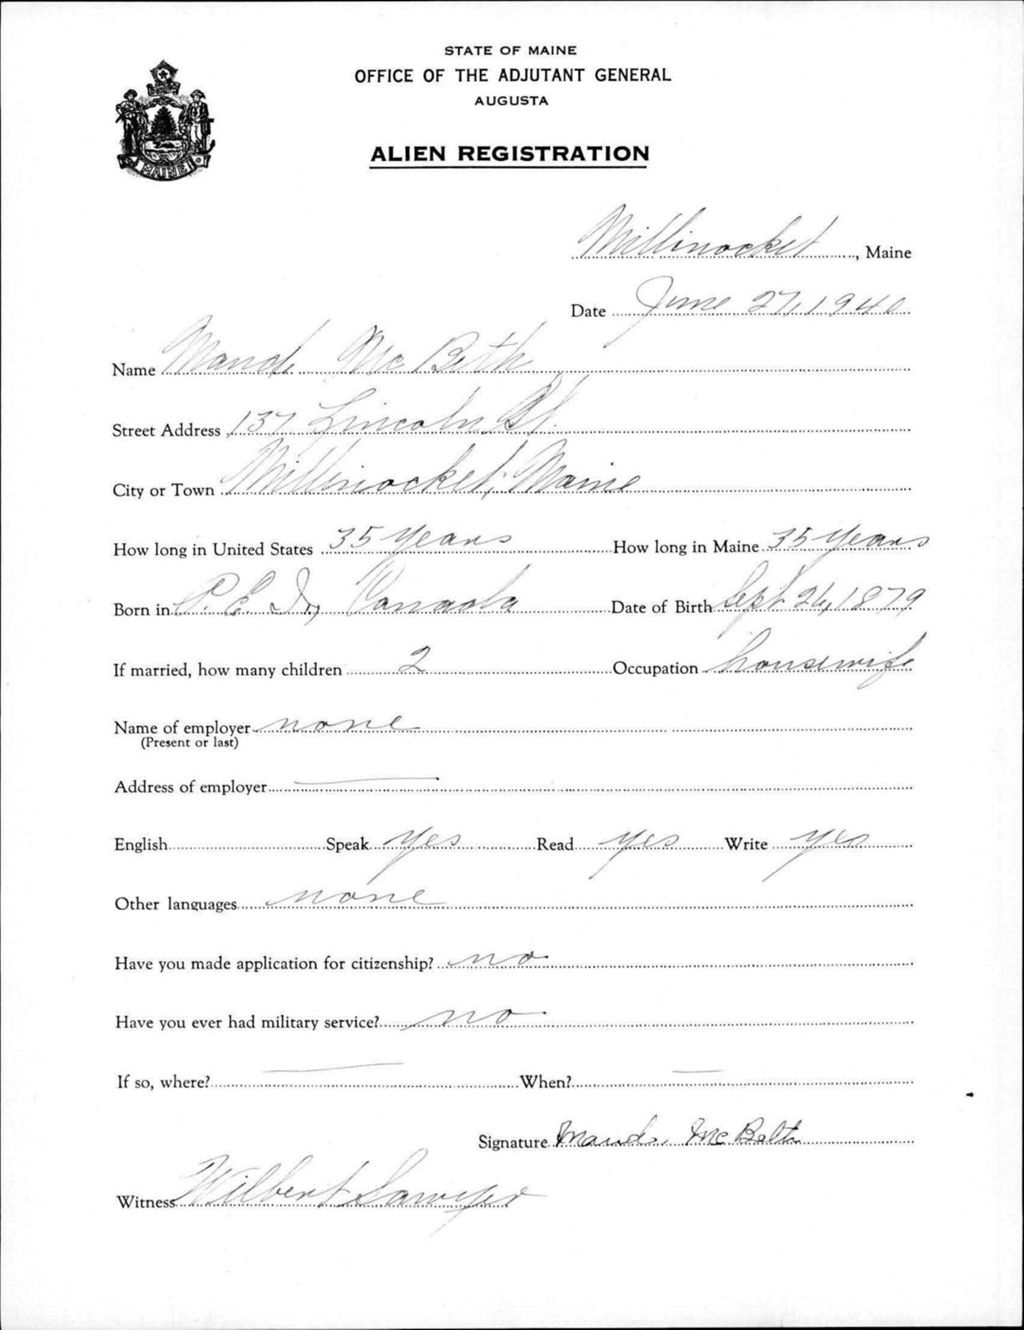 STATE OF MAINE
OFFICE OF THE ADJUTANT GENERAL
AUGUSTA
ALIEN REGISTRATION
MAINE
Millinocket, Maine
Date June 27, 1940
Name Maude McBeth
Street Address 137 Lincoln St.
City or Town Millinocket, Maine
How long in United States 35 years How long in Maine 35 years
Born in P. E. I., Canada Date of Birth Sept 26, 1879
If married, how many children 2 Occupation housewife
Name of employer none
(Present or last)
Address of employer
English Speak yes Read yes Write yes
Other languages none
Have you made application for citizenship? no
Have you ever had military service? no
If so, where? When?
Signature Maude McBeth
Witness Wilbert Sawyer